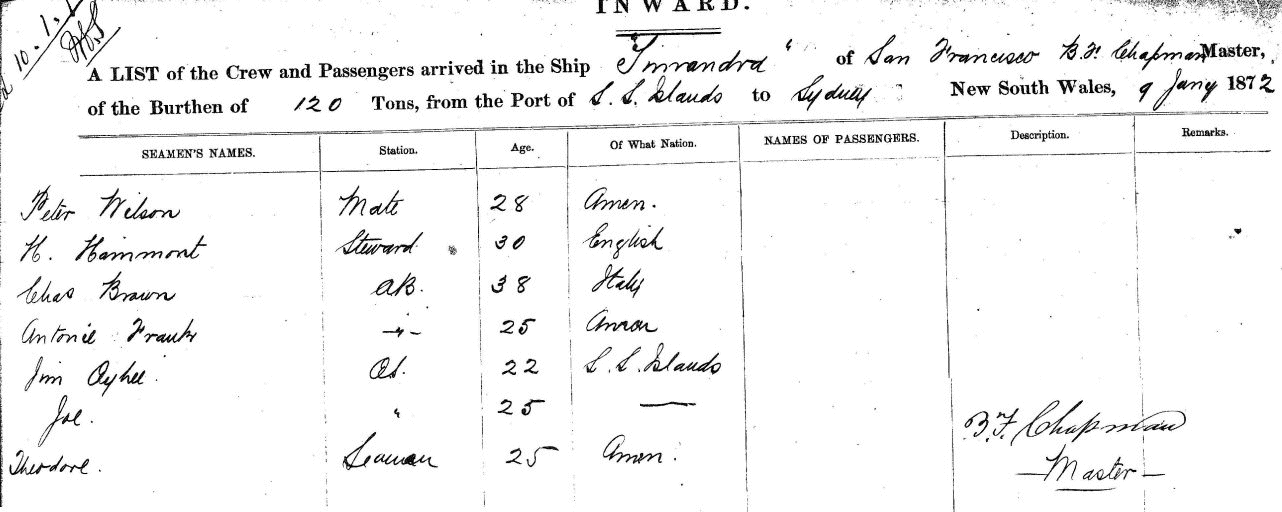 INWARD.
10.1.
A LIST of the Crew and Passengers arrived in the Ship "Timandra" of San Francisco B. F. Chapman Master,
of the Burthen of 120 Tons, from the Port of S. S. Islands to Sydney New South Wales, 9 Jany 1872
SEAMEN'S NAMES. Station. Age. Of What Nation. NAMES OF PASSENGERS. Description. Remarks.
Peter Wilson Mate 28 Amen.
H. Hammont Steward 30 English
Chas Brown AB. 38 Italy
Antonie Frank -"- 25
Jim OS. 22 S. S. Islands
Joe. " 25 —
B. F. Chapman
Theodore. Seaman 25 Amen.
—Master—